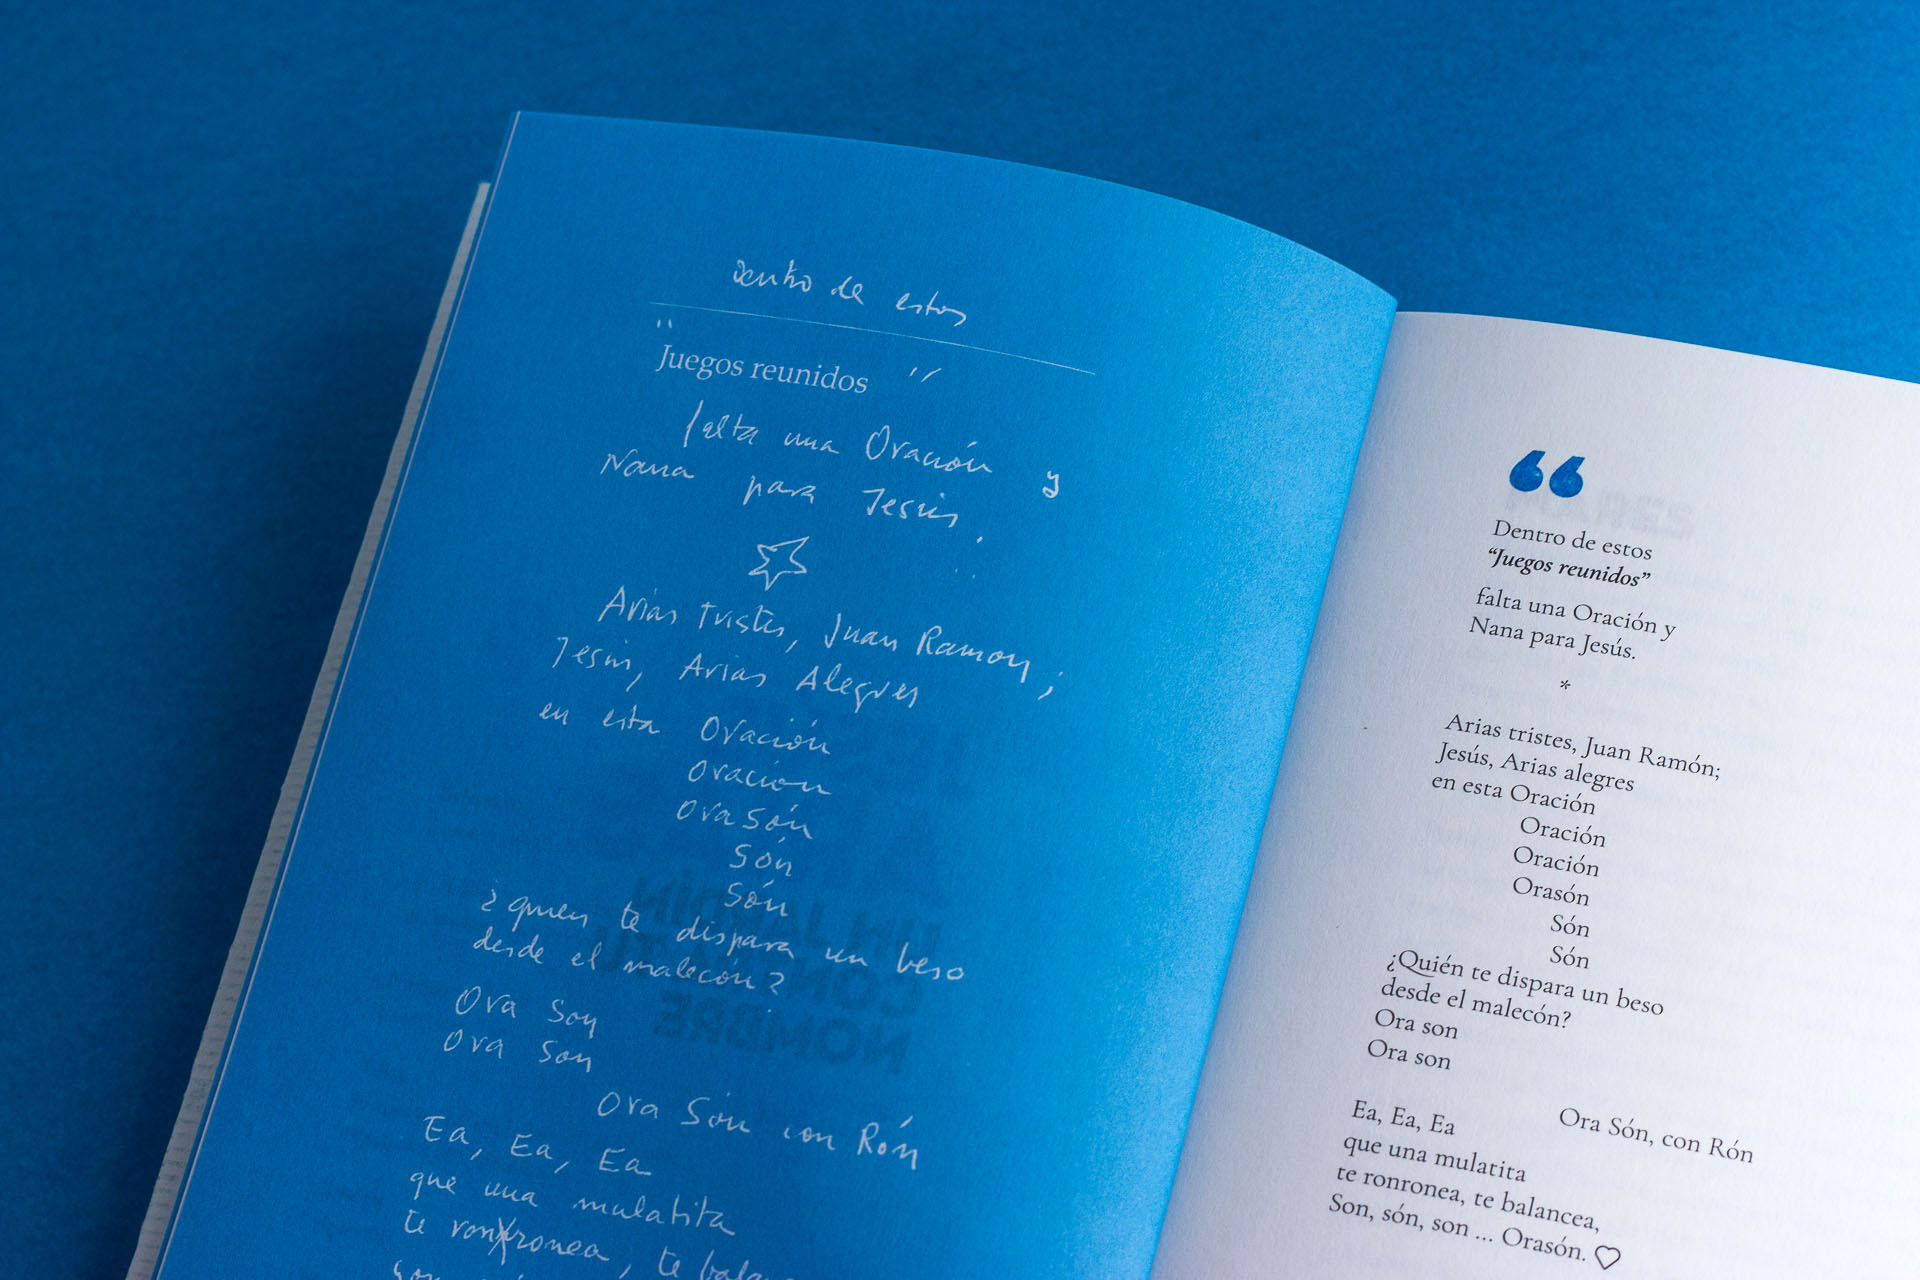 dentro de estos
"Juegos reunidos"
falta una Oración y
Nana para Jesús.
Arias tristes, Juan Ramón;
Jesús, Arias Alegres
en esta Oración
Oración
Orasón
Són
Són
¿quien te dispara un beso
desde el malecón?
Ora Son
Ora Son
Ora Són con Rón
Ea, Ea, Ea
que una mulatita
te ronronea, te
UN JARDÍN
CON TU
NOMBRE
“
Dentro de estos
“Juegos reunidos”
falta una Oración y
Nana para Jesús.
*
Arias tristes, Juan Ramón;
Jesús, Arias alegres
en esta Oración
Oración
Oración
Orasón
Són
Són
¿Quién te dispara un beso
desde el malecón?
Ora son
Ora son
Ora Són, con Rón
Ea, Ea, Ea
que una mulatita
te ronronea, te balancea,
Son, són, son ... Orasón. ♡